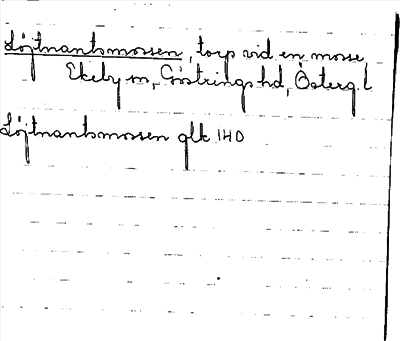 Löjtnantsmossen, torp vid en mosse,
Ekeby sn, Göstrings hd, Österg. l
Löjtnantsmossen glk 140